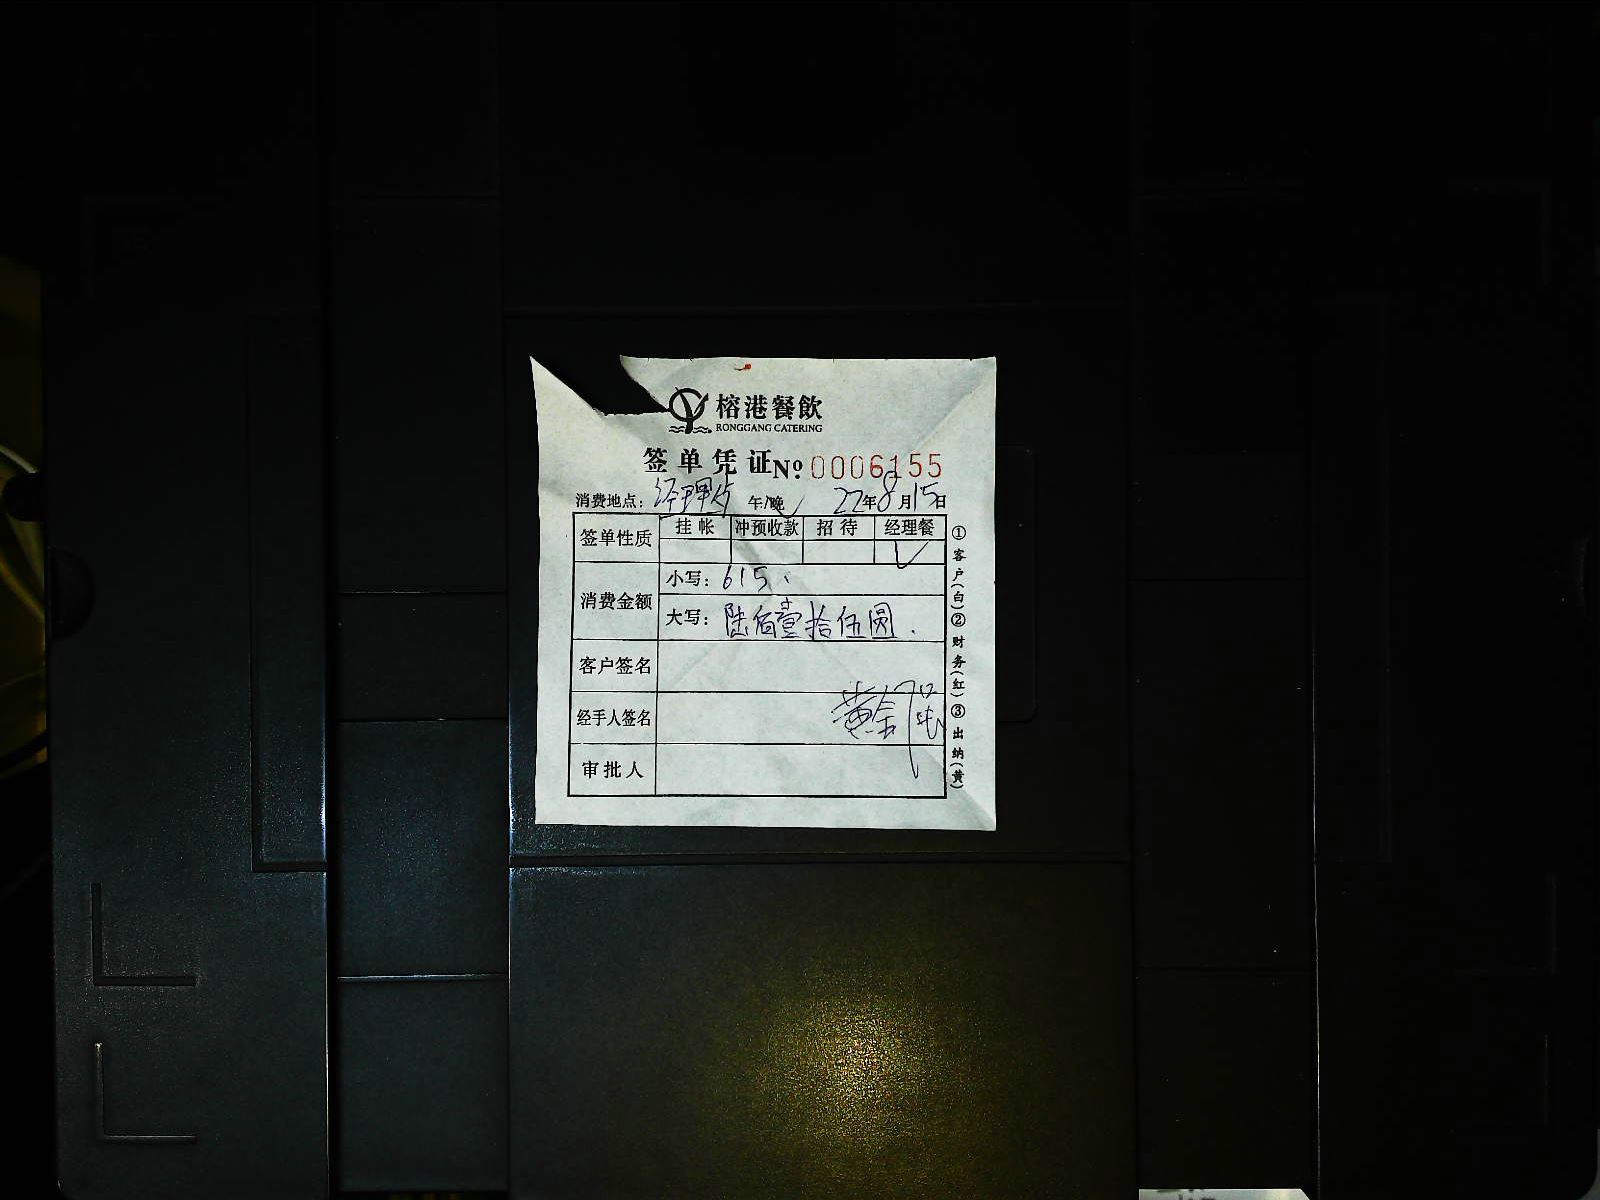 榕港餐飲
RONGGANG CATERING
签单凭证 Nº 0006155
消费地点: 经理 午/晚✓ 22年8月15日
签单性质 挂帐 冲预收款 招待 经理餐
✓
消费金额 小写: 615.
大写: 陆佰壹拾伍圆.
客户签名
经手人签名 黄金
审批人
①客户(白)②财务(红)③出纳(黄)